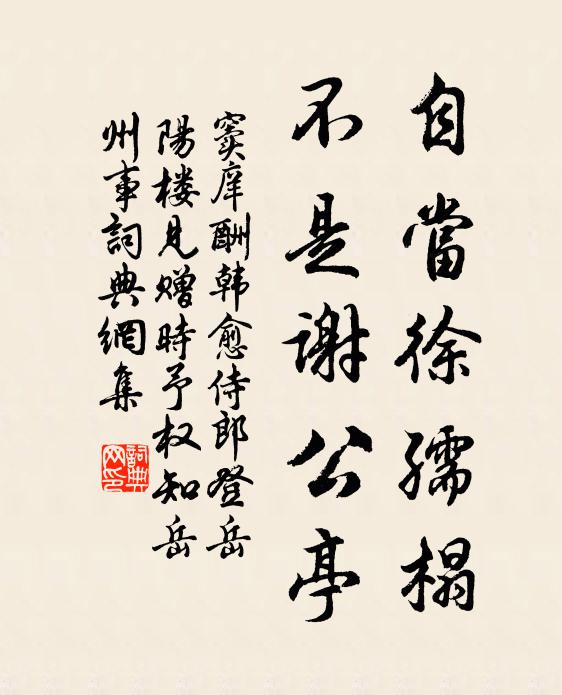 自當徐孺榻
不是謝公亭
窦庠酬韩愈侍郎登岳
陽楼見赠時予权知岳
州事詞典網集
詞典
网印